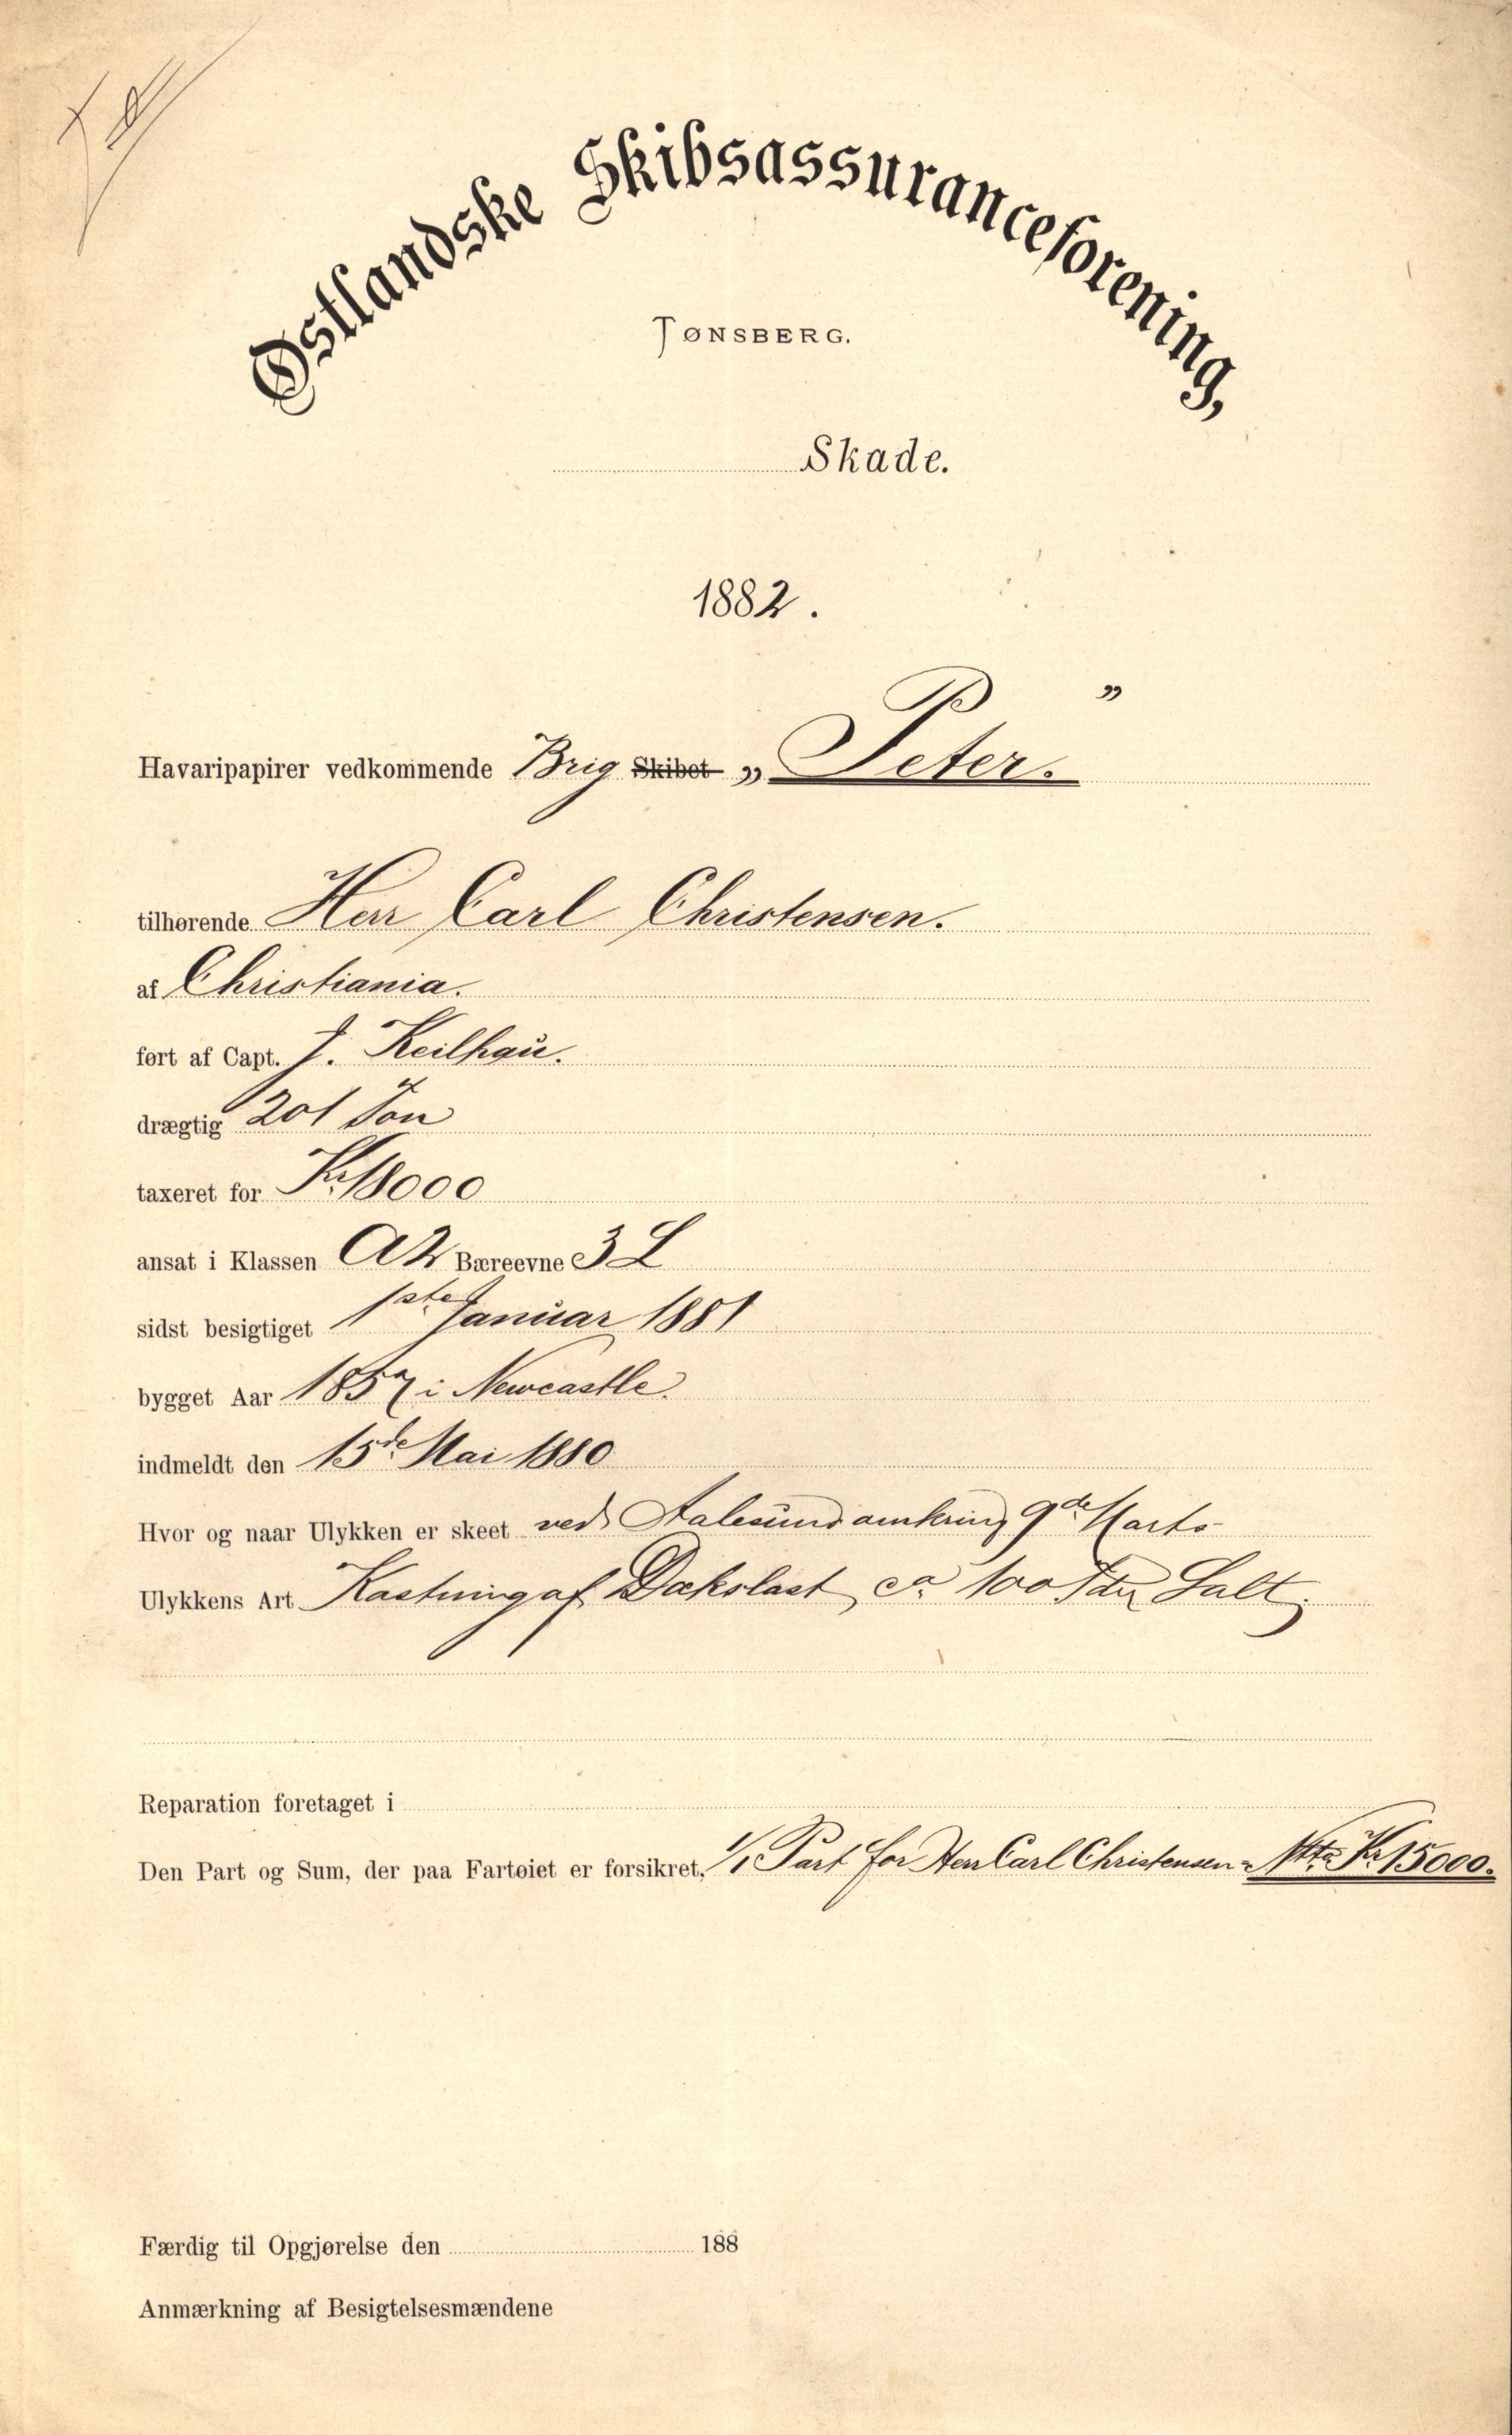 Østlandske Skibsassuranceforening,
TØNSBERG.
Skade.
1882.
Havaripapirer vedkommende Brig Skibet „Peter.”
tilhørende Herr Carl Christensen.
af Christiania.
ført af Capt. J. Keilhau.
drægtig 201 Ton
taxeret for Kr 18000
ansat i Klassen A2 Bæreevne 3 L
sidst besigtiget 1ste Januar 1881
bygget Aar 1857 i Newcastle.
indmeldt den 15de Mai 1880
Hvor og naar Ulykken er skeet ved Aalesund omkring 9de Marts
Ulykkens Art Kastning af Dækslast, ca 100 Tdr Salt.
Reparation foretaget i
Den Part og Sum, der paa Fartøiet er forsikret, 1/1 Part for Herr Carl Christensen - Kr 15000.
Færdig til Opgjørelse den 188
Anmærkning af Besigtelsesmændene